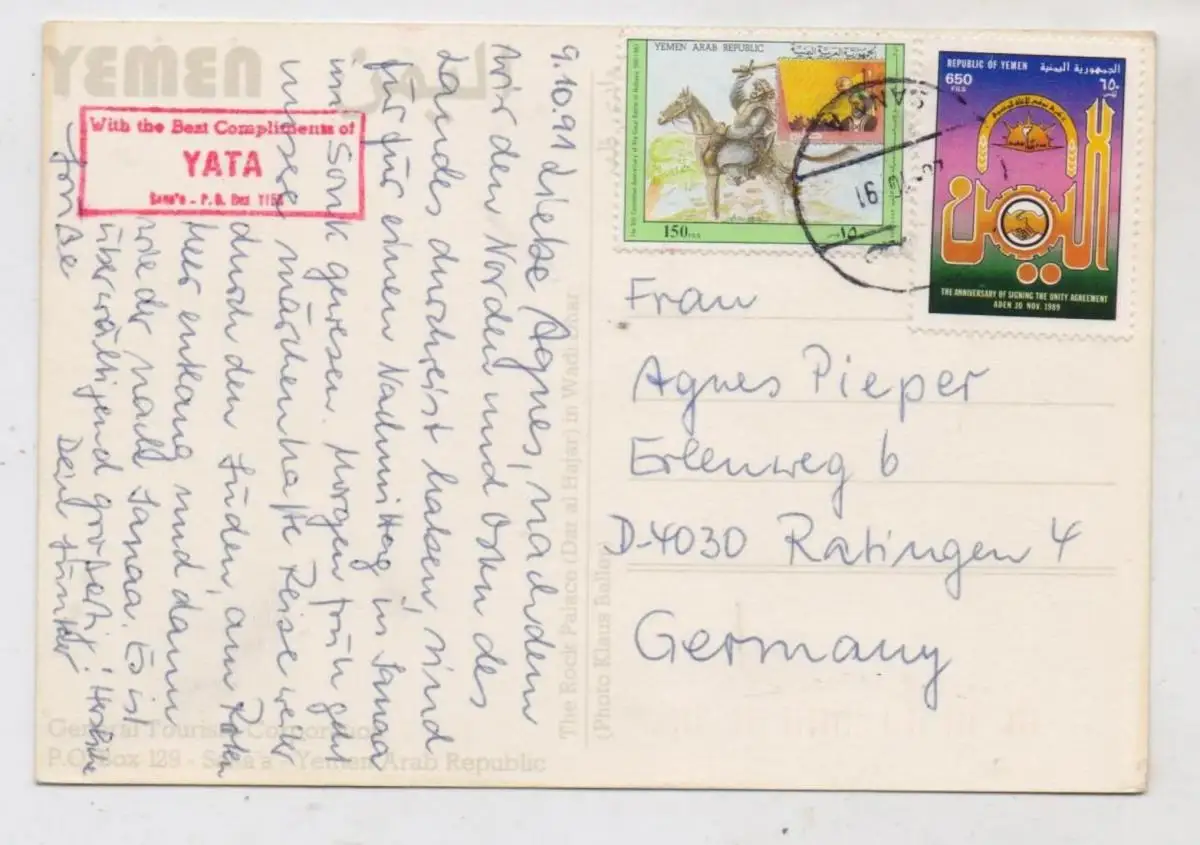 YEMEN
With the Best Compliments of
YATA
Sana'a - P.O. Box
9.10.91 Liebe Agnes, nachdem
wir den Norden und Osten des
Landes durchreist haben, sind
wir für einen Nachmittag in Sanaa
im Sonk gewesen. Morgen früh geht
unsere märchenhafte Reise weiter
durch den Süden, am Roten
Meer entlang und dann
wieder nach Sanaa. Es ist
überwältigend großartig! Herzliche
Grüße Dein Günther
General Tourism Corporation
P.O. Box 129 - Sana'a - Yemen Arab Republic
The Rock Palace (Dar al Hajar) in Wadi Dhar
(Photo Klaus Baller)
YEMEN ARAB REPUBLIC
الجمهورية العربية اليمنية
150 FILS
١٥٠
REPUBLIC OF YEMEN الجمهورية اليمنية
650
FILS
٦٥٠
فلس
اليمن
THE ANNIVERSARY OF SIGNING THE UNITY AGREEMENT
ADEN 30 NOV. 1989
91
Frau
Agnes Pieper
Erlenweg 6
D-4030 Ratingen 4
Germany